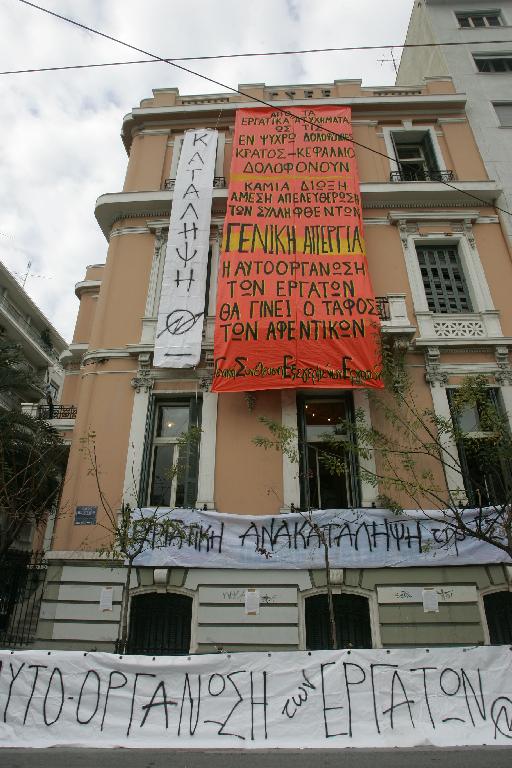 ΚΑΤΑΛΗΨΗ
ΑΠΟ ΤΑ
ΕΡΓΑΤΙΚΑ ΑΤΥΧΗΜΑΤΑ
ΩΣ ΤΙΣ
ΕΝ ΨΥΧΡΩ ΔΟΛΟΦΟΝΙΕΣ
ΚΡΑΤΟΣ-ΚΕΦΑΛΑΙΟ
ΔΟΛΟΦΟΝΟΥΝ
ΚΑΜΙΑ ΔΙΩΞΗ
ΑΜΕΣΗ ΑΠΕΛΕΥΘΕΡΩΣΗ
ΤΩΝ ΣΥΛΛΗΦΘΕΝΤΩΝ
ΓΕΝΙΚΗ ΑΠΕΡΓΙΑ
Η ΑΥΤΟΟΡΓΑΝΩΣΗ
ΤΩΝ ΕΡΓΑΤΩΝ
ΘΑ ΓΙΝΕΙ Ο ΤΑΦΟΣ
ΤΩΝ ΑΦΕΝΤΙΚΩΝ
Γενική Συνέλευση Εξεγερμένων Εργατών
ΑΝΑΚΑΤΑΛΗΨΗ
ΑΥΤΟ-ΟΡΓΑΝΩΣΗ των ΕΡΓΑΤΩΝ